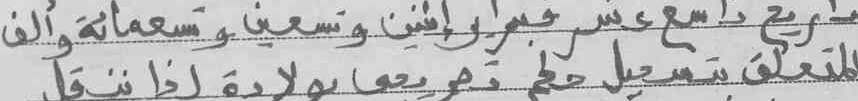 بتاريخ تاسع عشر فبراير إثنين وتسعين وتسعمائة وألف
المتعلق بتسجيل حكم تصريحي بولادة لذا ننتقل